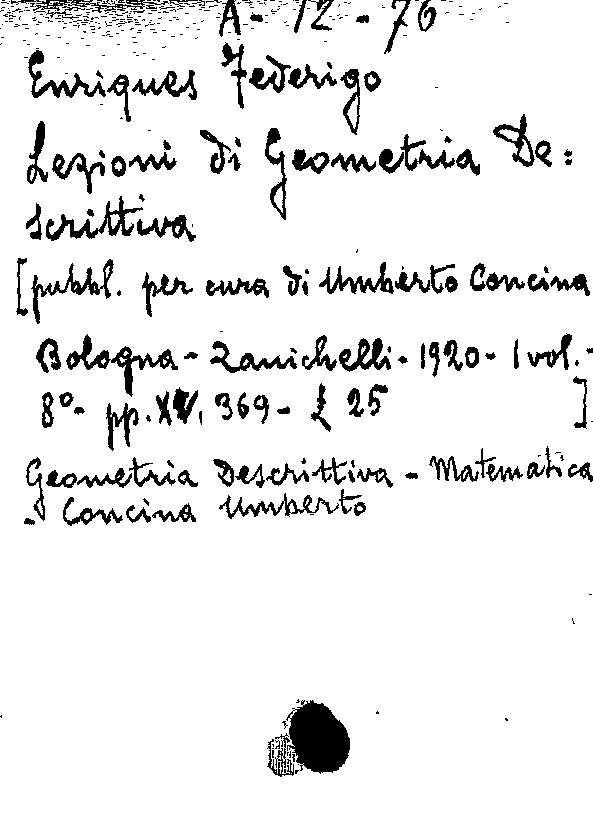 A - 12 - 76
Enriques Federigo
Lezioni di Geometria De:
scrittiva
[pubbl. per cura di Umberto Concina
Bologna - Zanichelli - 1920 - 1 vol. -
8º - pp. XV, 369 - £ 25 ]
Geometria Descrittiva - Matematica
- Concina Umberto